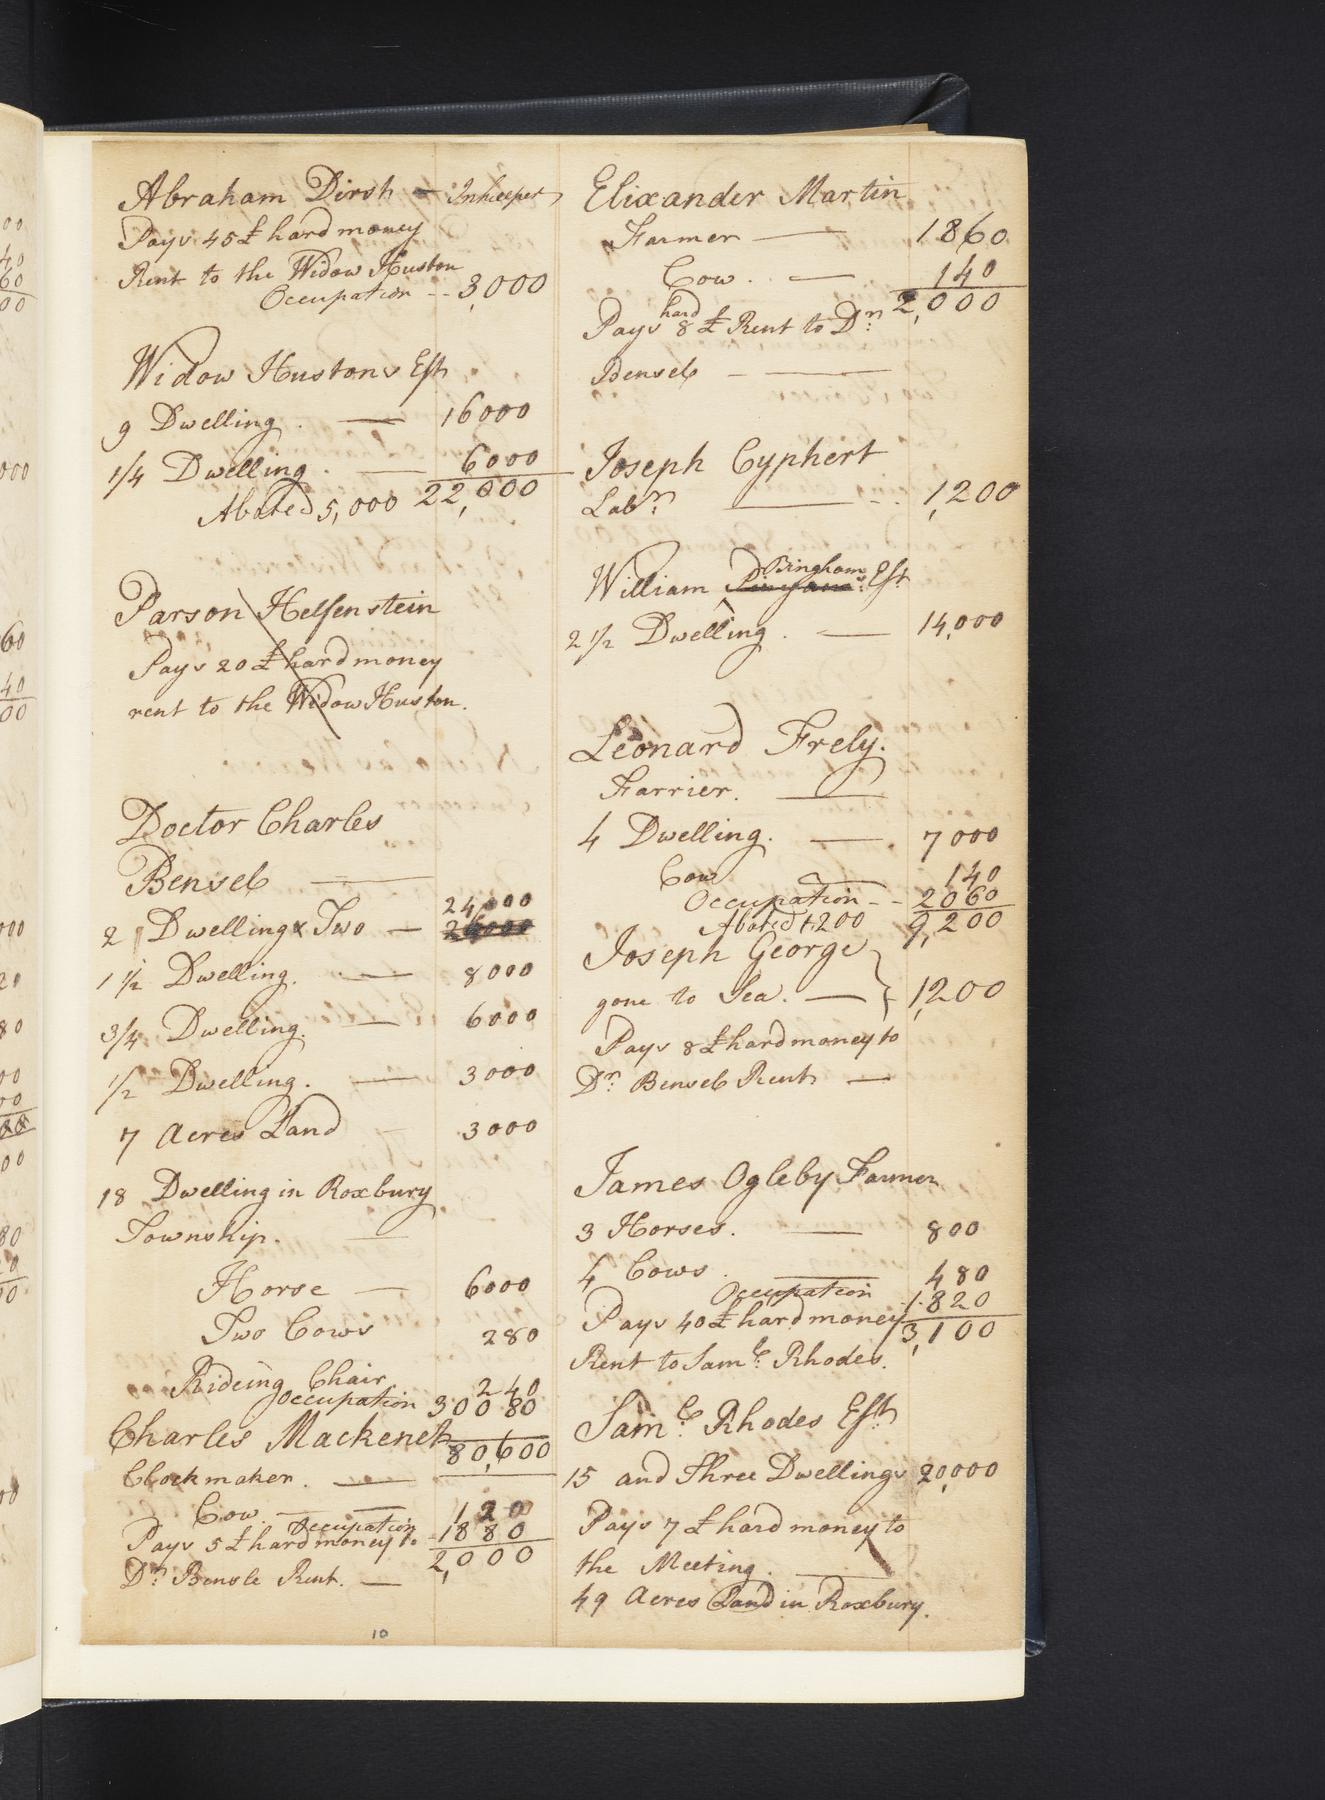 Abraham Dirsh - Inkeeper
Pays 45£ hard money
Rent to the Widow Huston
Occupation -- 3,000
Widow Hustons Est
9 Dwelling . — 16000
1/4 Dwelling . — 6000
22,000
Abated 5,000
Parson Helfenstein
Pays 20£ hard money
rent to the Widow Huston.
Doctor Charles
Bensel —
24,000
2 Dwelling & Two — 26000
1 1/2 Dwelling. — 8000
3/4 Dwelling. — 6000
1/2 Dwelling. — 3000
7 Acres Land - 3000
18 Dwelling in Roxbury
Township. —
Horse — 6000
Two Cows 280
Rideing Chair 240
Occupation 30080
80,600
Charles Mackenet
Clockmaker . —
Cow. — 120
Occupation 1880
Pays 5£ hard money to 2,000
Dr. Bensle Rent. —
10
Elixander Martin
Farmer — 1860
Cow. — 140
2,000
Pays hard 8£ Rent to Dr.
Bensel - —
Joseph Cyphert
Labr. — -- 1,200
William Bingham Est
2 1/2 Dwelling . — 14,000
Leonard Frely.
Farrier. —
4 Dwelling. — 7000
Cow — 140
Occupation -- 2060
Abated 1200 9,200
Joseph George
gone to Sea. — } 1,200
Pays 8£ hard money to
Dr. Bensel Rent —
James Ogleby Farmer
3 Horses. — 800
4 Cows . — 480
Occupation 1820
Pays 40£ hard money 3,100
Rent to Saml. Rhodes.
Saml. Rhodes Est
15 and Three Dwellings 20,000
Pays 7£ hard money to
the Meeting. —
49 Acres Land in Roxbury.